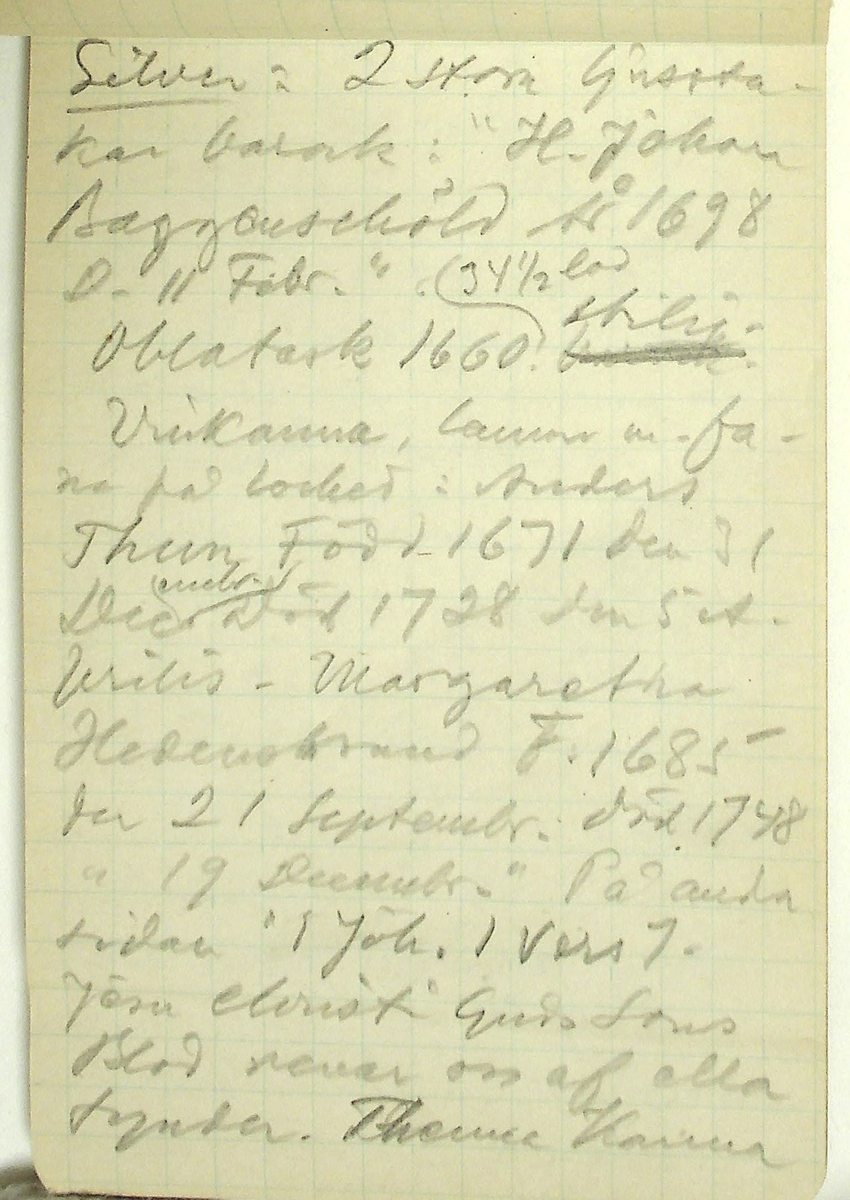 Silver: 2 stora ljussta-
kar barock: "H. Johan
Baggenschöld År 1698
D. 11 Febr." (34 1/2 lod
Oblatask 1660.
Vinkanna, lamm m. fa-
na på locket: Anders
Thun Född 1671 den 31
Decembr. Död 1728 den 5 A-
prilis - Margaretha
Hedenstrand F. 1685
den 21 Septembr. död 1748
" 19 Decembr." På andra
sidan "1 Joh. 1 Vers 7.
Jesu Christi Guds Sons
Blod renar oss af alla
synder. Thenne Kanna